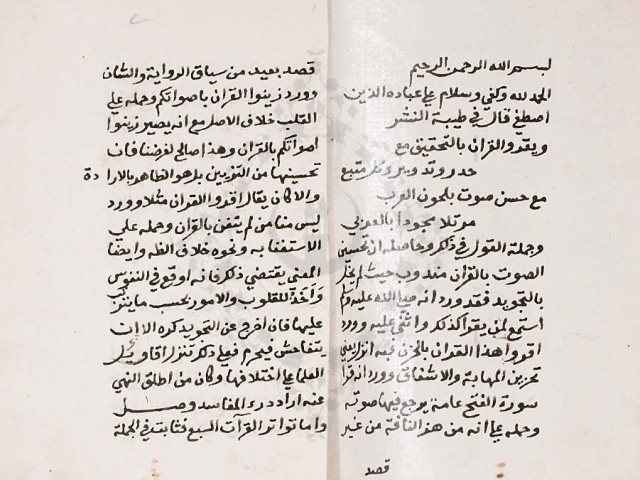 بسم الله الرحمن الرحيم
الحمد لله وكفي وسلام علي عباده الذين
اصطفي قال في طيبة النشر
ويقرؤ القران بالتحقيق مع
حدر وتدوير وكل متبع
مع حسن صوت بلحون العرب
مرتلا مجودا بالعربي
وجملة القول في ذكر وحاصله ان تحسين
الصوت بالقران مندوب حيث لم يخل
بالتجويد فقد ورد انه صلي الله عليه وسلم
استمع لمن يقرا كذلك واثني عليه وورد
اقروا هذا القران بالحزن فيه انزل يعني
تحزين المهابة والاشفاق وورد انه قرا
سورة الفتح عامة يرجع فيها صوته
وحمله علي انه من هز الناقة من غير
قصد
قصد بعيد من سياق الرواية والشان
وورد زينوا القران باصواتكم وحمله علي
القلب خلاف الاصل مع انه يصير زينوا
اصواتكم بالقران وهذا صالح لغرضنا فان
تحسينها من التزيين بل هو الظاهر بالارادة
والا كان يقال اقرؤ القران مثلا وورد
ليس منا من لم يتغن بالقران وحمله علي
الاستغنا به ونحوه خلاف الظه وايضا
المعني يقتضي ذكر فانه اوقع في النفوس
وآخَذُ للقلوب والامور بحسب ما يترتب
عليها فان اخرج عن التجويد كره الا ان
يتفاحش فيحرم فعلي ذكر تنزل اقاويل
العلما علي اختلافها وكان من اطلق النهي
عنه اراد درء المفاسد وصل
واما تواتر القرآت السبع فثابت في الجملة